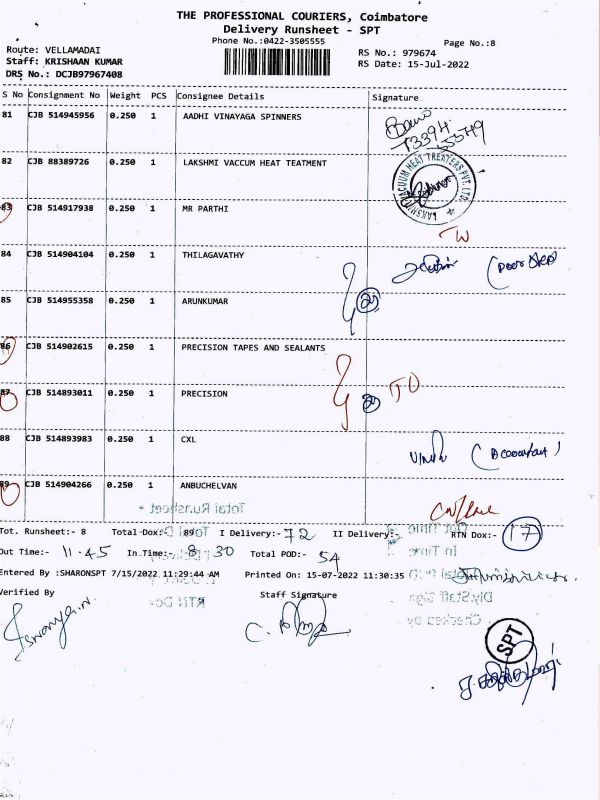 THE PROFESSIONAL COURIERS, Coimbatore
Delivery Runsheet - SPT
Phone No.:0422-3505555
Page No.:8
Route: VELLAMADAI
Staff: KRISHAAN KUMAR
DRS No.: DCJB97967408
RS No.: 979674
RS Date: 15-Jul-2022
S No Consignment No Weight PCS Consignee Details Signature
81 CJB 514945956 0.250 1 AADHI VINAYAGA SPINNERS
82 CJB 88389726 0.250 1 LAKSHMI VACCUM HEAT TEATMENT
83 CJB 514917938 0.250 1 MR PARTHI
84 CJB 514904104 0.250 1 THILAGAVATHY
85 CJB 514955358 0.250 1 ARUNKUMAR
86 CJB 514902615 0.250 1 PRECISION TAPES AND SEALANTS
87 CJB 514893011 0.250 1 PRECISION
88 CJB 514893983 0.250 1 CXL
89 CJB 514904266 0.250 1 ANBUCHELVAN
Tot. Runsheet:- 8 Total Dox: 89 I Delivery:- 72 II Delivery:- RTN Dox:- 17
Out Time:- 11.45 In.Time:- 8 30 Total POD:- 54
Entered By :SHARONSPT 7/15/2022 11:29:44 AM Printed On: 15-07-2022 11:30:35
Verified By Staff Signature
SPT